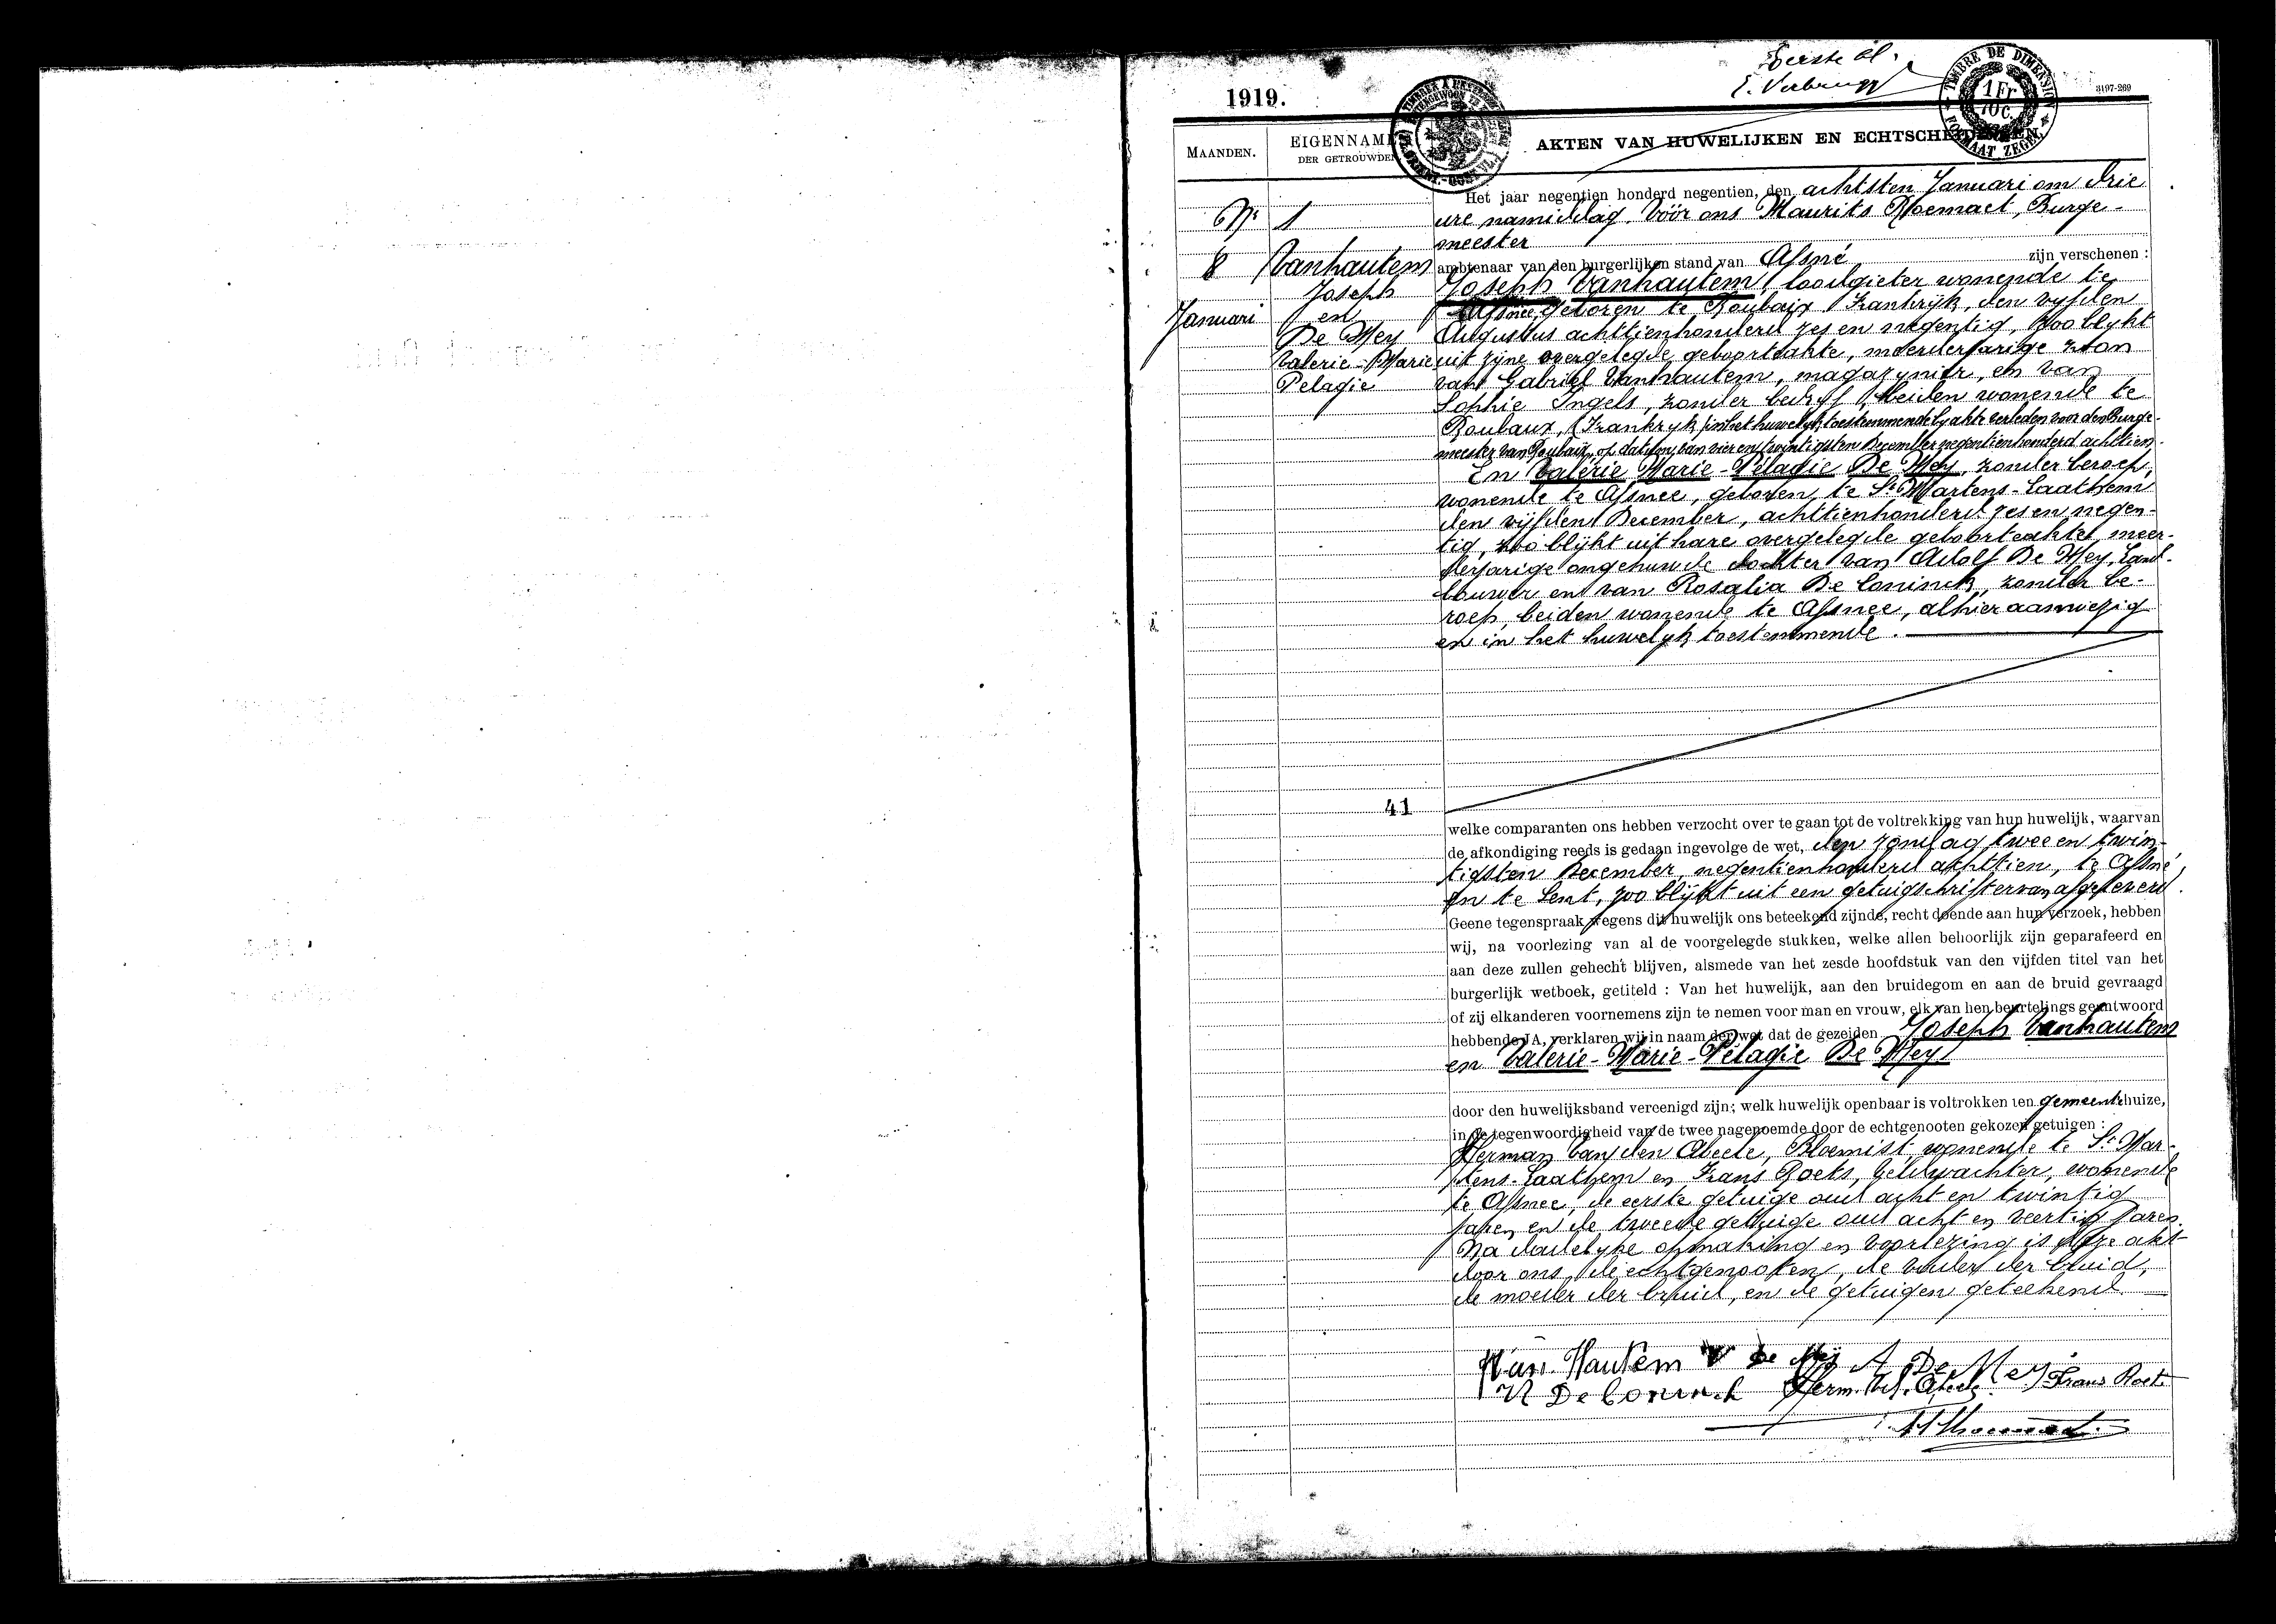 Eerste bl.
E. Verbrugg
1919.
3197-269
TIMBRE DE DIMENSION
1 Fr
10 C.
FORMAAT ZEGEL
MAANDEN.
EIGENNAMEN
DER GETROUWDEN
AKTEN VAN HUWELIJKEN EN ECHTSCHEIDINGEN.
Nr 1
8
Januari
Vanhautem
Joseph
en
De Mey
Valerie-Marie
Pelagie
Het jaar negentien honderd negentien, den achtsten Januari om drie
ure namiddag. Vóór ons Maurits Roemaet, Burge-
meester
ambtenaar van den burgerlijken stand van Afsné zijn verschenen :
Joseph Vanhautem, loodgieter wonende te
Afsnee, geboren te Roubaix Frankrijk, den vijfden
Augustus achttienhonderd zes en negentig, zoo blijkt
uit zijne overgelegde geboorteakte, meerderjarige zoon
van Gabriel Vanhautem, magazynier, en van
Sophie Ingels, zonder bedrijf, beiden wonende te
Roubaux, (Frankryk) in het huwelyk toestemmende by akte verleden voor den Burge-
meester van Roubaix, op datum van vier en twintigsten December negentienhonderd achttien.
En Valérie Marie-Pélagie De Mey, zonder beroep,
wonende te Afsnee, geboren te St Martens-Laathem
den vijfden December, achttienhonderd zes en negen-
tig, zoo blijkt uit hare overgelegde geboorteakte, meer-
derjarige ongehuwde dochter van Adolf De Mey, Land-
bouwer en van Rosalia De Coninck, zonder be-
roep, beiden wonende te Afsnee, alhier aanwezig
en in het huwelyk toestemmende.
41
welke comparanten ons hebben verzocht over te gaan tot de voltrekking van hun huwelijk, waarvan
de afkondiging reeds is gedaan ingevolge de wet, den zondag twee en twin-
tigsten December, negentienhonderd achttien, te Afsné,
en te Gent, zoo blijkt uit een getuigschrift ervan afgeleverd.
Geene tegenspraak wegens dit huwelijk ons beteekend zijnde, recht doende aan hun verzoek, hebben
wij, na voorlezing van al de voorgelegde stukken, welke allen behoorlijk zijn geparafeerd en
aan deze zullen gehecht blijven, alsmede van het zesde hoofdstuk van den vijfden titel van het
burgerlijk wetboek, getiteld : Van het huwelijk, aan den bruidegom en aan de bruid gevraagd
of zij elkanderen voornemens zijn te nemen voor man en vrouw, elk van hen beurtelings geantwoord
hebbende JA, verklaren wij in naam der wet dat de gezeiden Joseph Vanhautem
en Valerie-Marie-Pélagie De Mey
door den huwelijksband vereenigd zijn; welk huwelijk openbaar is voltrokken ten gemeentehuize,
in de tegenwoordigheid van de twee nagenoemde door de echtgenooten gekozen getuigen :
Herman Van den Abeele, Bloemist, wonende te St Mar-
tens-Laathem en Frans Roets, veldwachter, wonende
te Afsnee, de eerste getuige oud acht en twintig
jaren en de tweede getuige oud acht en veertig jaren.
Na dadelyke opmaking en voorlezing is deze akt
door ons, de echtgenooten, de vader der bruid,
de moeder der bruid, en de getuigen geteekend.
Van Hautem V De Mey A De Mey
R De Coninck Herm. Vd. Abeele Frans Roets